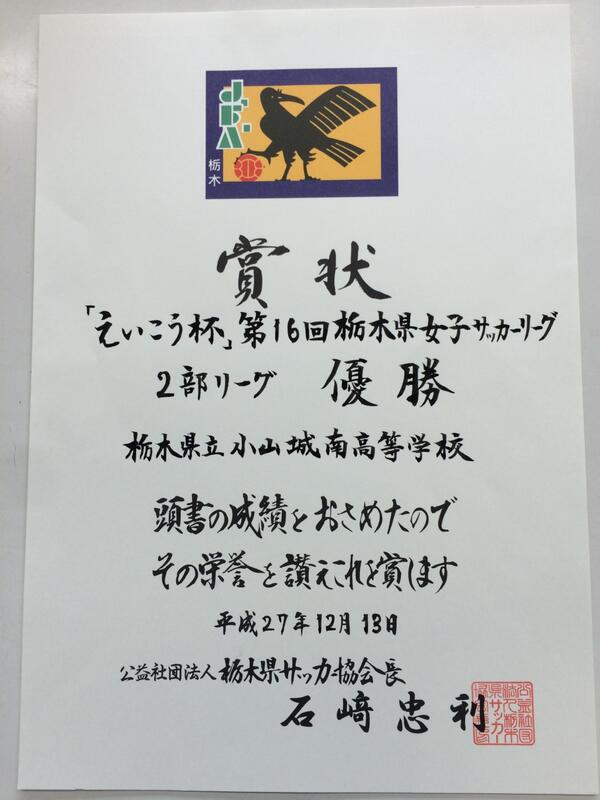 JFA
栃木
賞状
「えいこう杯」第16回栃木県女子サッカーリーグ
2部リーグ 優勝
栃木県立小山城南高等学校
頭書の成績をおさめたので
その栄誉を讃えこれを賞します
平成27年12月13日
公益社団法人 栃木県サッカー協会長
石﨑忠利